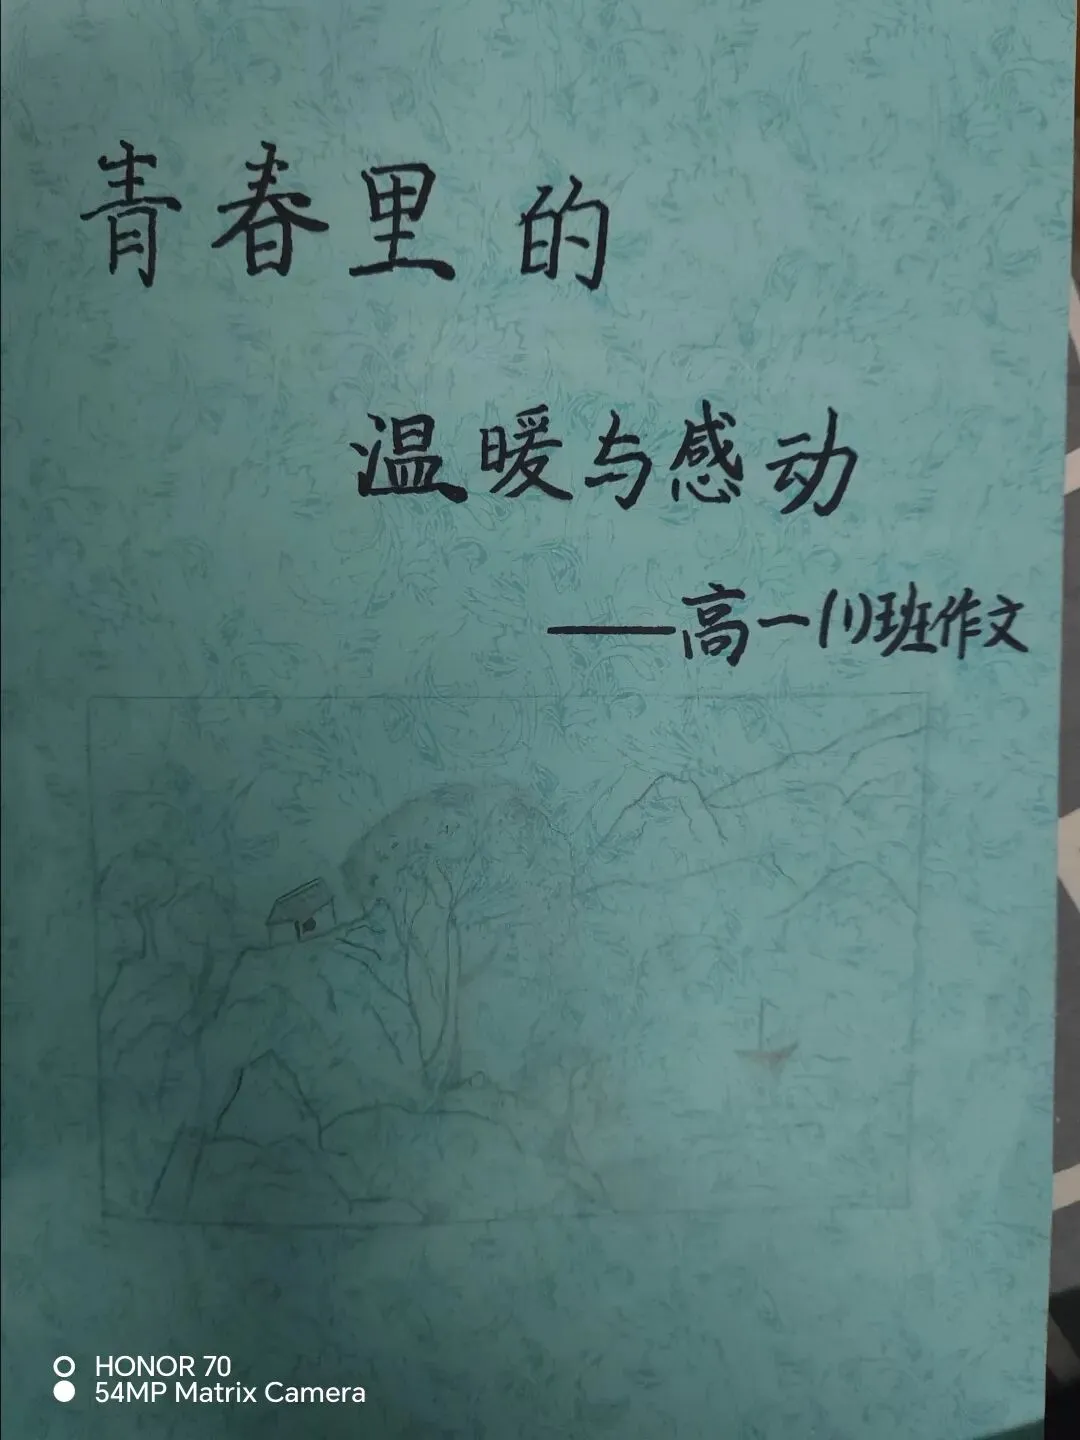 青春里的
温暖与感动
——高一(1)班作文
HONOR 70
54MP Matrix Camera